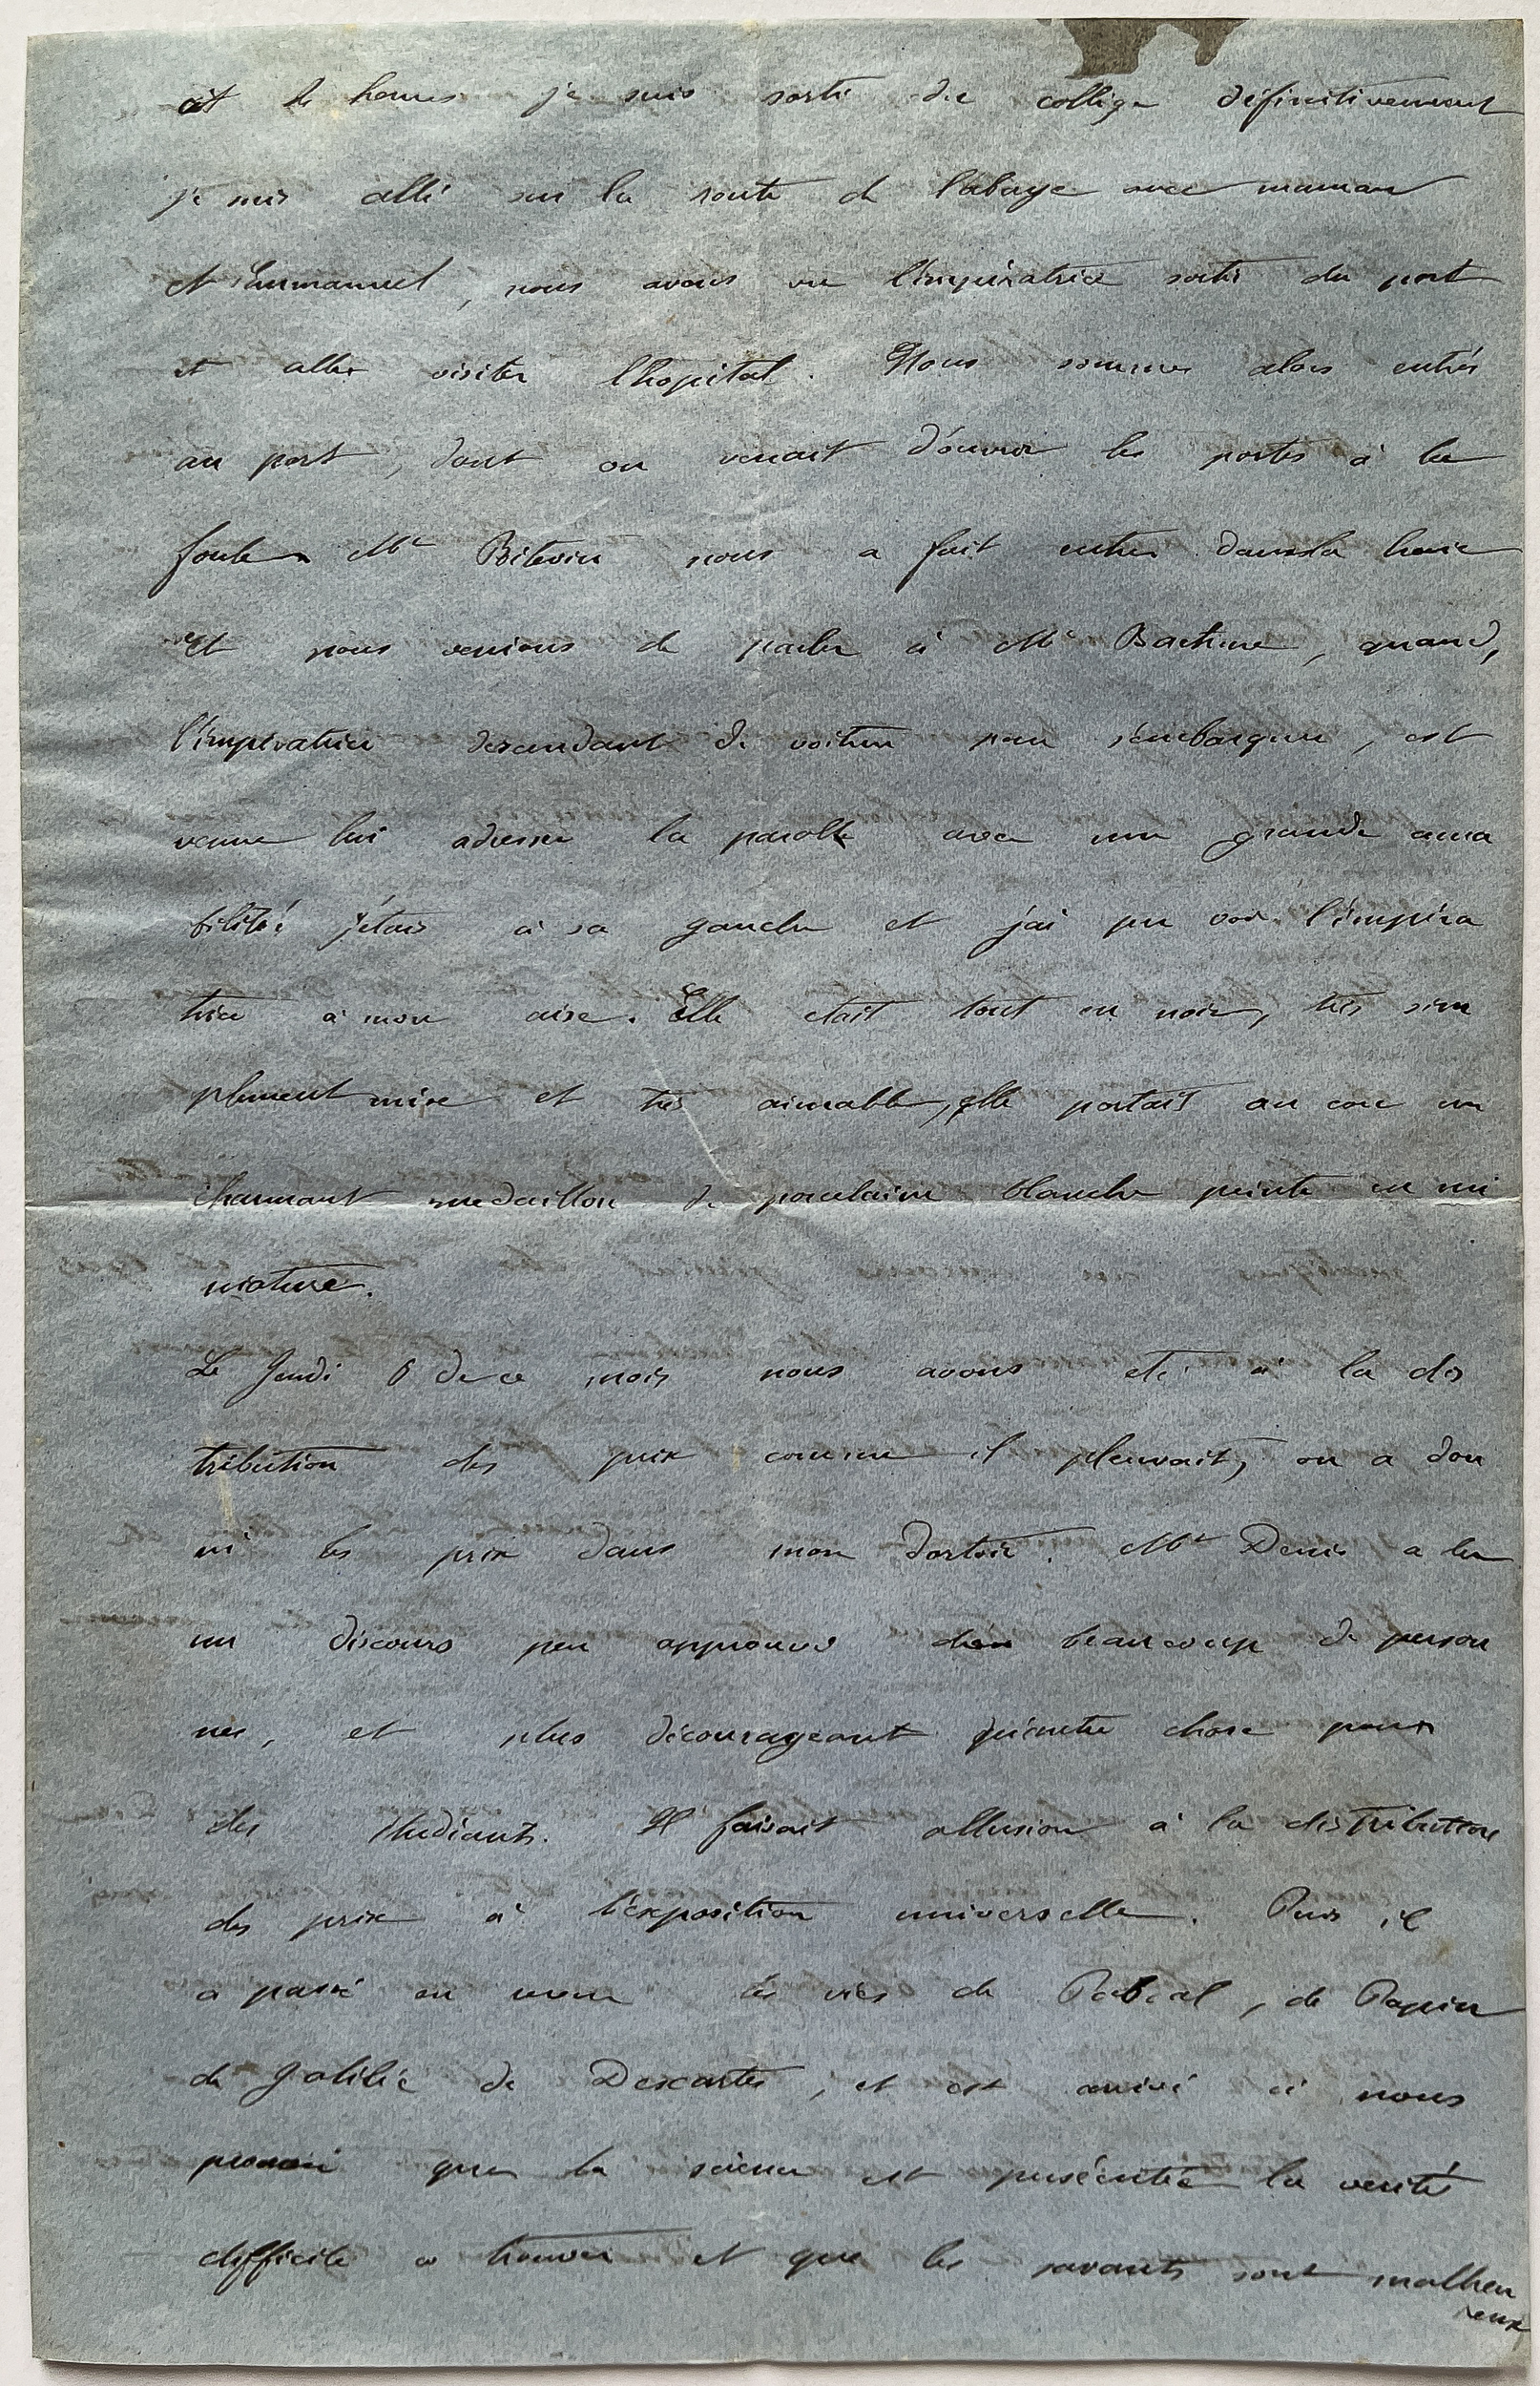 et de heures je suis sorti du collège définitivement
je suis allé sur la route de l'abaye avec maman
et Emmanuel, nous avons vu l'impératrice sortir du port
et aller visiter l'hopital. Nous sommes alors entrés
au port, dont on venait d'ouvrir les portes à la
foule Mr Bitevin nous a fait entrer dans la haie
et nous venions de parler à Mr , quand,
l'impératrice descendant de voiture pour s'embarquer, est
venue lui adresser la parolle avec une grande ama
bilité! j'étais à sa gauche et j'ai pu voir l'impéra
trice à mon aise. Elle était tout en noir, très sim
plement mise et très aimable, elle portait au cou un
charmant medaillon de porcelaine blanche peinte en mi
niature.
Le Jeudi 8 de ce mois nous avons eté à la dis
tribution des prix comme il pleuvait, on a don
né les prix dans mon dortoir. Mr Denis a lu
un discours peu approuvé de beaucoup de person
nes, et plus décourageant qu'autre chose pour
des étudiants. Il faisait allusion à la distribution
des prix à l'exposition universelle. Puis il
a passé en revue les vies de Pascal, de Papin
de Galilée de Descartes, et est arrivé à nous
prouver que la science est persécutée la verité
difficile a trouver et que les savants sont malheu
reux